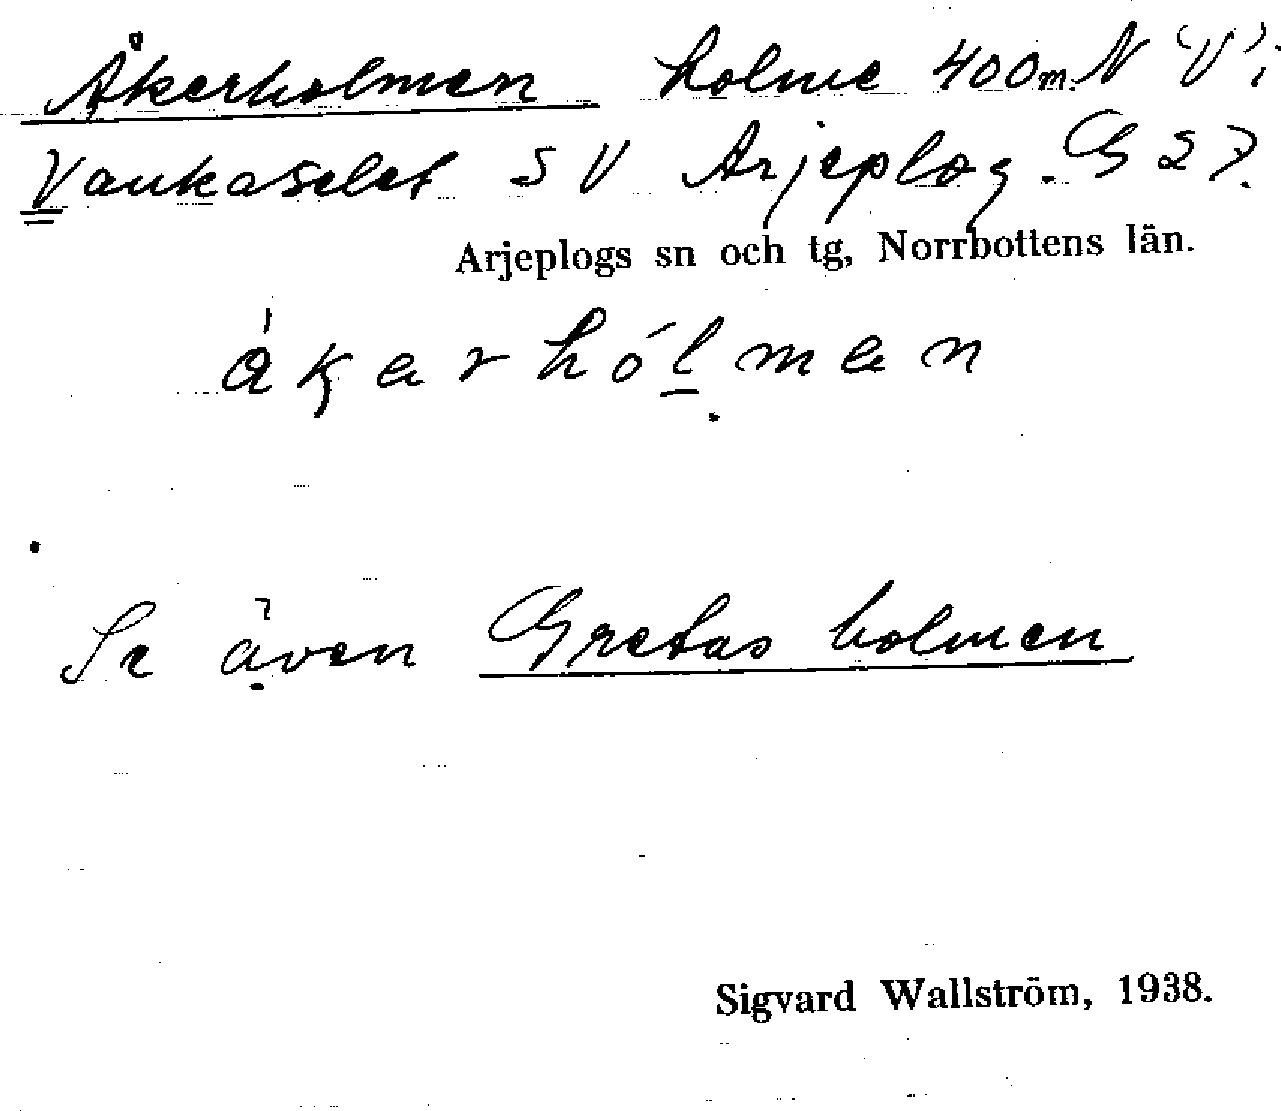 Åkerholmen holme 400m N "V" i
Vaukaselet S V Arjeplog. G 27.
Arjeplogs sn och tg, Norrbottens län.
ákerhólmen
Se även Gretas holmen
Sigvard Wallström, 1938.